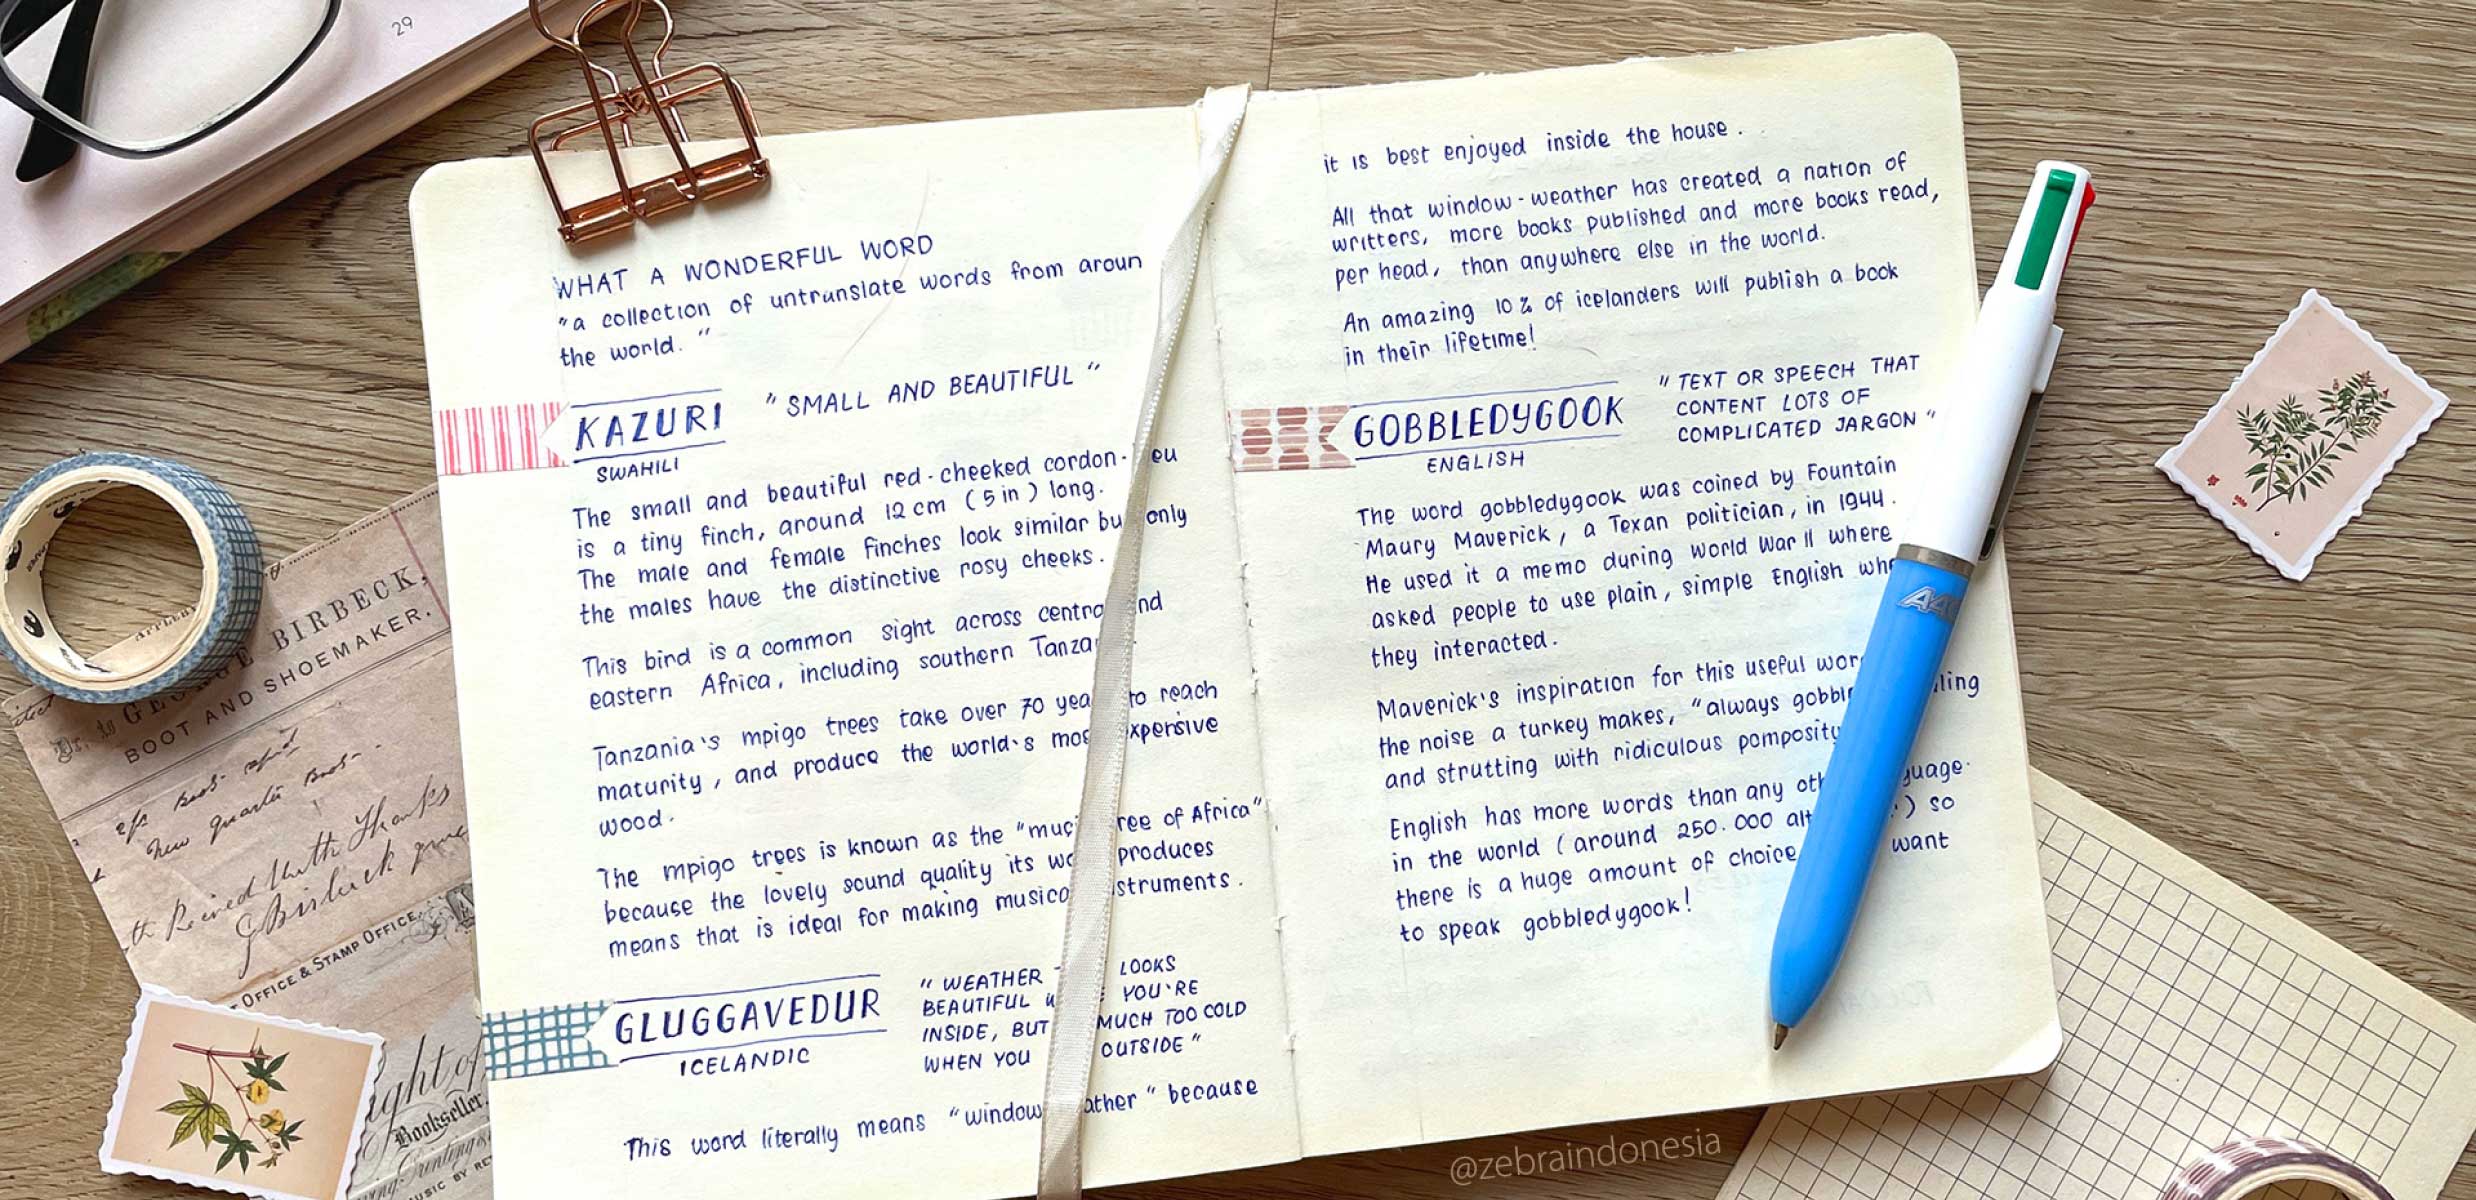 29
WHAT A WONDERFUL WORD
"a collection of untranslate words from aroun
the world."
KAZURI
"SMALL AND BEAUTIFUL"
SWAHILI
The small and beautiful red-cheeked cordon- eu
is a tiny finch, around 12 cm (5 in) long.
The male and female finches look similar bu only
the males have the distinctive rosy cheeks.
This bind is a common sight across centra nd
eastern Africa, including southern Tanza
Tanzania's mpigo trees take over 70 yea to reach
maturity, and produce the world's mos xpensive
wood.
The mpigo trees is known as the "mus ree of Africa"
because the lovely sound quality its wo produces
means that is ideal for making musica struments.
GLUGGAVEDUR
ICELANDIC
"WEATHER - LOOKS
BEAUTIFUL W E YOU'RE
INSIDE, BUT MUCH TOO COLD
WHEN YOU OUTSIDE"
This word literally means "window ather" because
it is best enjoyed inside the house.
All that window-weather has created a nation of
writters, more books published and more books read,
per head, than anywhere else in the world.
An amazing 10% of icelanders will publish a book
in their lifetime!
GOBBLEDYGOOK
ENGLISH
"TEXT OR SPEECH THAT
CONTENT LOTS OF
COMPLICATED JARGON"
The word gobbledygook was coined by Fountain
Maury Maverick, a Texan politician, in 1944.
He used it a memo during World War II where
asked people to use plain, simple English whe
they interacted.
Maverick's inspiration for this useful wor
the noise a turkey makes, "always gobbl ling
and strutting with ridiculous pomposity
English has more words than any oth guage.
in the world (around 250.000 alt ) so
there is a huge amount of choice want
to speak gobbledygook!
GEORGE BIRBECK,
BOOT AND SHOEMAKER.
OFFICE & STAMP OFFICE,
Bookseller,
MUSIC BY
@zebraindonesia